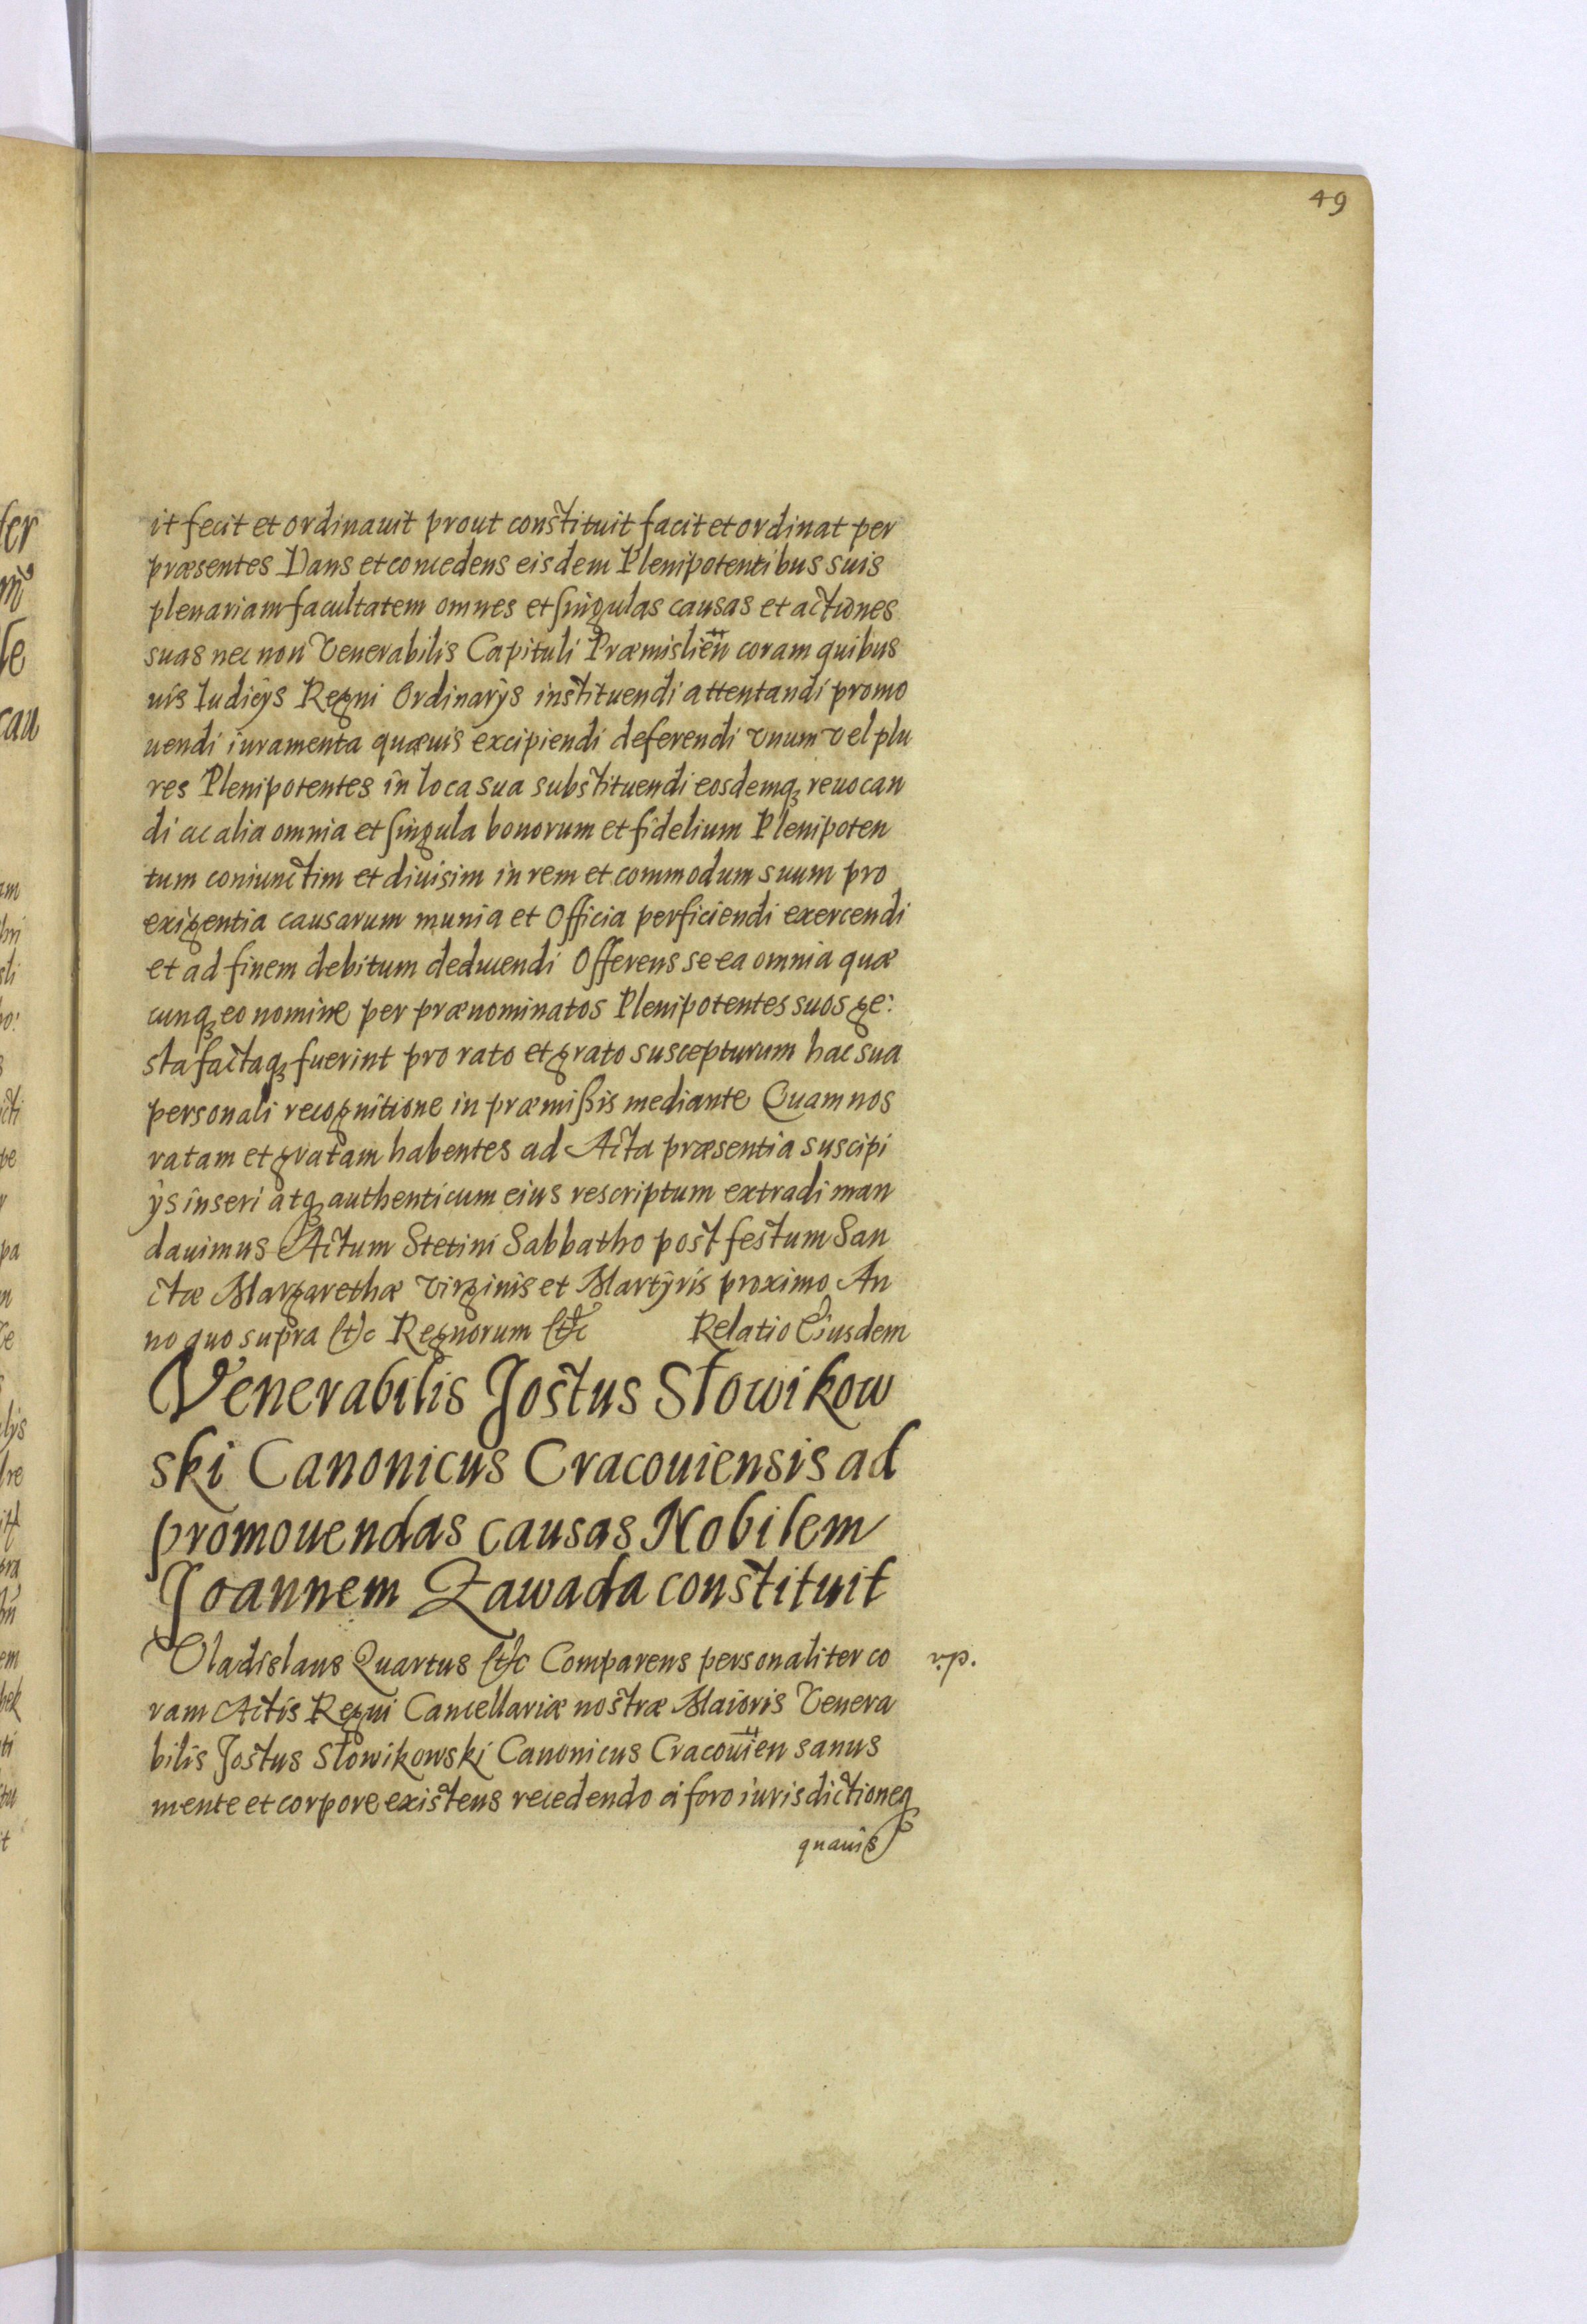 49
it fecit et ordinauit prout constituit facit et ordinat per
præsentes Dans et concedens eisdem Plenipotentibus suis
plenariam facultatem omnes et singulas causas et actiones
suas nec non Venerabilis Capituli Præmislien̄ coram quibus
uis Iudicÿs Regni Ordinarÿs instituendi attentandi promo
uendi iuramenta quæuis excipiendi deferendi vnum vel plu
res Plenipotentes in loca sua substituendi eosdemq₃ reuocan
di ac alia omnia et singula bonorum et fidelium Plenipoten
tum coniunctim et diuisim in rem et commodum suum pro
exigentia causarum munia et Officia perficiendi exercendi
et ad finem debitum deducendi Offerens se ea omnia quæ
cunq₃ eo nomine per prænominatos Plenipotentes suos ge:
sta factaq₃ fuerint pro rato et grato suscepturum hac sua
personali recognitione in præmißis mediante Quam nos
ratam et gratam habentes ad Acta præsentia suscipi
ÿs inseri atq₃ authenticum eius rescriptum extradi man
dauimus Actum Stetini Sabbatho post festum San
ctæ Margarethæ Virginis et Martÿris proximo An
no quo supra etc Regnorum etc Relatio Eiusdem
Venerabilis Jostus Słowikow
ski Canonicus Cracouiensis ad
promouendas causas Nobilem
Joannem Zawada constituit
Vladislaus Quartus etc Comparens personaliter co
r.p.
ram Actis Regni Cancellariæ nostræ Maioris Venera
bilis Jostus Słowikowski Canonicus Cracouien̄ sanus
mente et corpore existens recedendo à foro iurisdictioneq₃
quauis